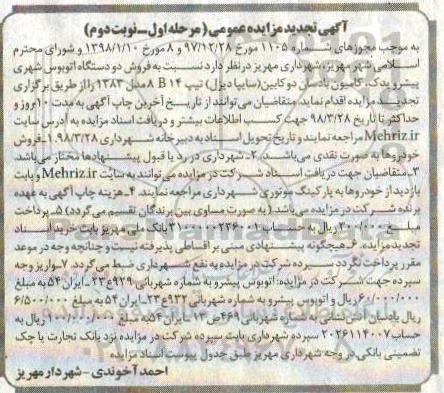 آگهی تجدید مزایده عمومی (مرحله اول_ نوبت دوم)
به موجب مجوزهای شماره ۱۱۰۵ مورخ ۹۷/۱۲/۲۸ و ۸ مورخ ۱۳۹۸/۱/۱۰ و شورای محترم
اسلامی شهر مهریز، شهرداری مهریز در نظر دارد نسبت به فروش دو دستگاه اتوبوس شهری
پیشرو یدک، کامیون پادسان دو کابین (سایپا دیزل) تیپ B ۱۴ ۸ مدل ۱۳۸۳ را از طریق برگزاری
تجدید مزایده اقدام نماید. متقاضیان می‌توانند از تاریخ آخرین چاپ آگهی به مدت ۱۰ روز و
حداکثر تا ۹۸/۳/۲۸ جهت کسب اطلاعات بیشتر و دریافت اسناد مزایده به آدرس سایت
Mehriz.ir مراجعه نمایند و تاریخ تحویل اسناد به دبیرخانه شهرداری ۹۸/۳/۲۸. ۱_ فروش
خودروها به صورت نقدی می‌باشد. ۲_ شهرداری در رد یا قبول پیشنهادها مختار می‌باشد.
۳_ متقاضیان جهت دریافت اسناد شرکت در مزایده می توانند به سایت Mehriz.ir و بابت
بازدید از خودروها به پارکینگ موتوری شهرداری مراجعه نمایند. ۴_ هزینه چاپ آگهی به عهده
برنده شرکت در مزایده می‌باشد. (به صورت مساوی بین برندگان تقسیم می گردد) ۵_ پرداخت
مبلغ ۲۰۰/۰۰۰ ریال به حساب بانک ملی مهریز بابت خرید اسناد
تجدید مزایده. ۶_ هیچگونه پیشنهادی مبنی بر اقساطی پذیرفته نیست و چنانچه وجه در موعد
مقرر پرداخت نگردد سپرده شرکت در مزایده به نفع شهرداری ضبط می گردد. ۷_ واریز وجه
سپرده جهت شرکت در مزایده: اتوبوس پیشرو به شماره شهربانی ۹۲۹ع۲۳_ ایران ۵۴ به مبلغ
۶۰/۰۰۰/۰۰۰ ریال و اتوبوس پیشرو به شماره شهربانی ۹۳۲ع۲۳_ ایران ۵۴ به مبلغ ۶/۵۰۰/۰۰۰
ریال پادسان آتش نشانی به شماره شهربانی ۴۶۹ص۱۳_ ایران ۵۴ به مبلغ ریال به
حساب ۲۰۲۶۱۱۴۰۰۷ سپرده شهرداری بابت سپرده شرکت در مزایده نزد بانک تجارت یا چک
تضمینی بانکی در وجه شهرداری مهریز طبق جدول پیوست اسناد مزایده
احمد آخوندی_ شهردار مهریز